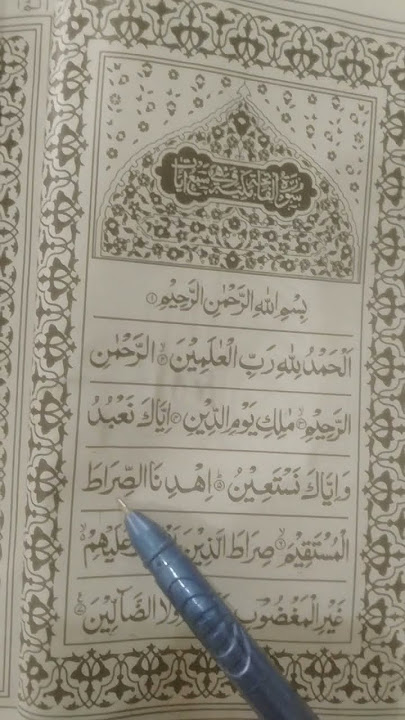 سورة الفاتحة مكية وهي سبع آيات
بِسْمِ اللهِ الرَّحْمٰنِ الرَّحِيْمِ ۝۱
اَلْحَمْدُ لِلّٰهِ رَبِّ الْعٰلَمِيْنَ ۝۲ الرَّحْمٰنِ
الرَّحِيْمِ ۝۳ مٰلِكِ يَوْمِ الدِّيْنِ ۝۴ اِيَّاكَ نَعْبُدُ
وَاِيَّاكَ نَسْتَعِيْنُ ۝۵ اِهْدِنَا الصِّرَاطَ
الْمُسْتَقِيْمَ ۝۶ صِرَاطَ الَّذِيْنَ عَلَيْهِمْ
غَيْرِ الْمَغْضُوْبِ لَا الضَّآلِّيْنَ ۝۷